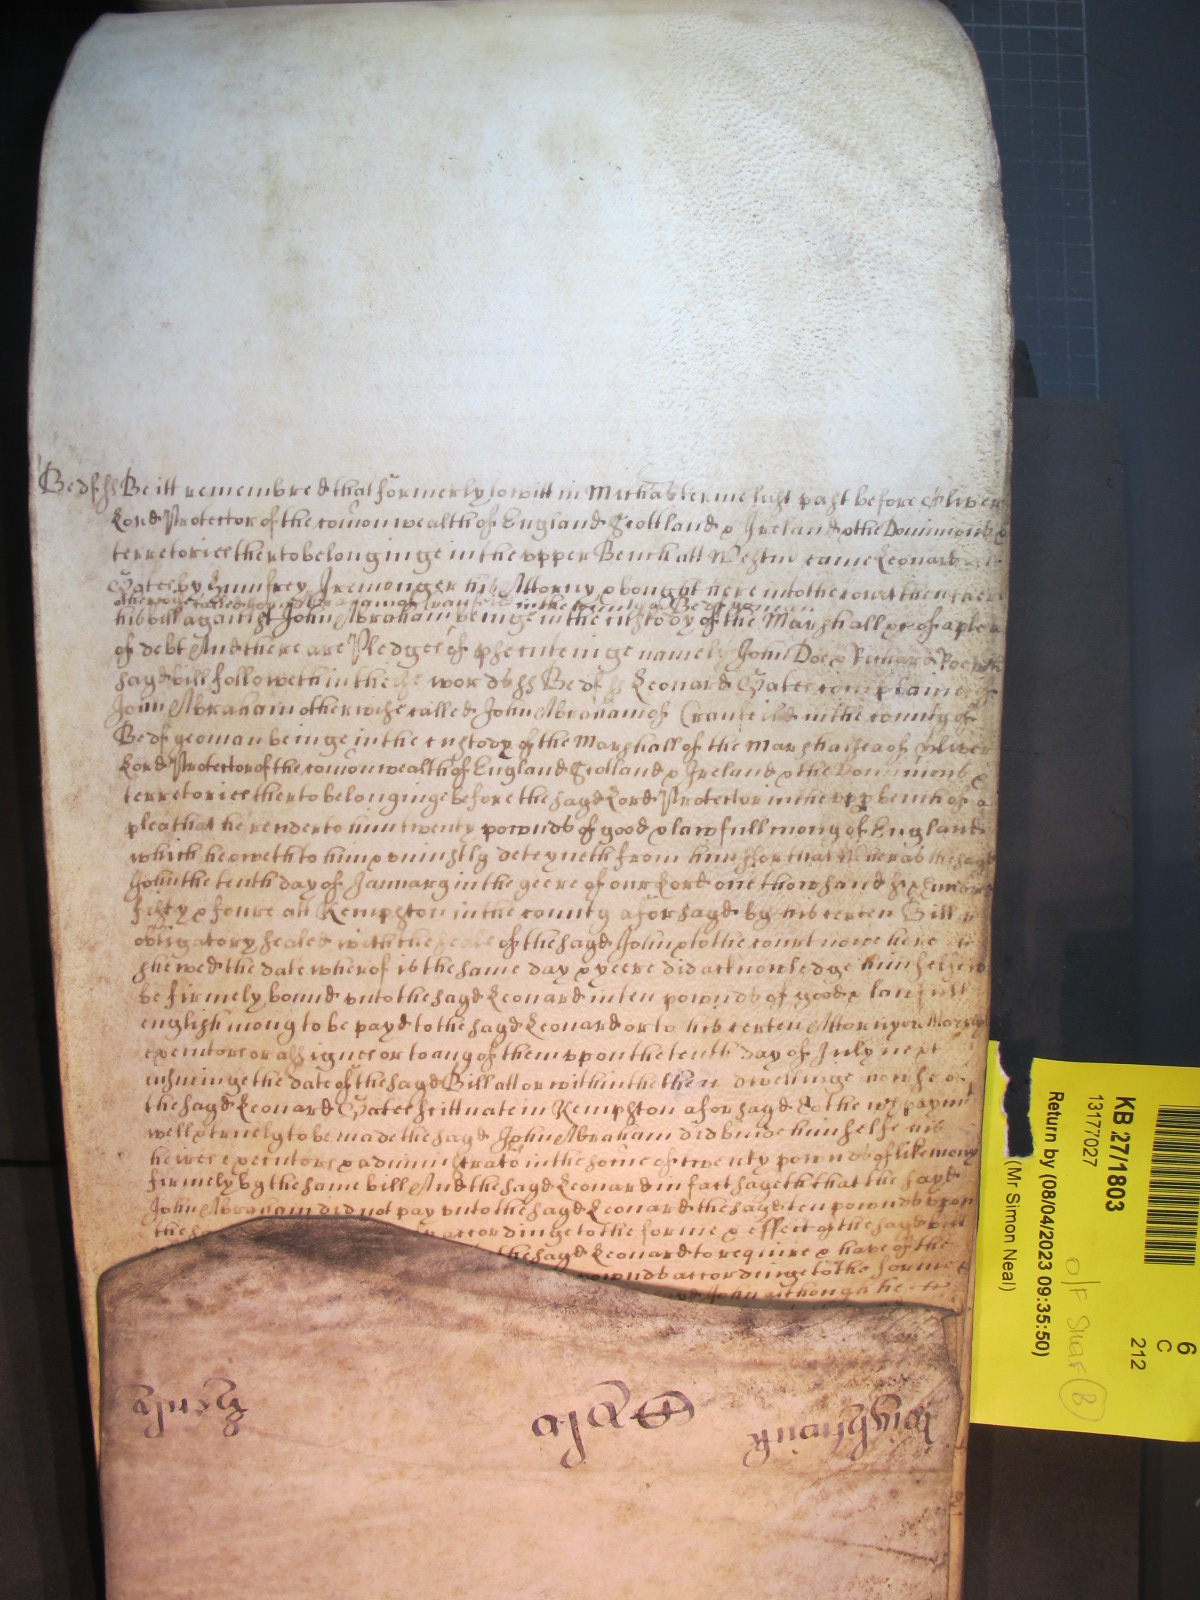 Bedf ss Be itt remembred that formerly to witt in Michas terme last past before Oliver
Lord Protector of the comonwealth of England Scottland & Ireland & the Dominions &
terretories therto belonginge in the vpper Bench att Westm came Leonard
Gates by Humfrey Iremonger his Attorny & bought here into the court then ther
otherwise called John Abraham of Cranfeild in the county of Bedf yeoman
his bill against John Abraham beinge in the custody of the Marshall &c of a plea
of debt And there are Pledges of prsecuteinge namely John Doe & Richard Roe wch
sayd bill followeth in these words ss Bedf ss Leonard Gates complaines of
John Abraham otherwise called John Abraham of Cranfeild in the county of
Bedf yeoman beinge in the custody of the Marshall of the Marshalsea of Oliver
Lord Protector of the comonwealth of England Scotland & Ireland & the Dominions &
terretories therto belonginge before the sayd Lord Protector in the vpp bench of a
plea that he render to him twenty pownds of good & lawfull mony of England
which he oweth to him & uniustly deteyneth from him ffor that Wheras the sayd
John the tenth day of January in the yeere of our Lord one thowsand six hundred
fifty & foure att Kempston in the county aforsayd by his certen Bill
obligatory sealed with the seale of the sayd John & to the court nowe here
shewed the date wherof is the same day & yeere did acknowledge himselfe to
be firmely bound vnto the sayd Leonard in ten pownds of good & lawfull
english mony to be payd to the sayd Leonard or to his certen Attorny
executors or assignes or to any of them vppon the tenth day of July next
ensueinge the date of the sayd Bill att or within the then dwellinge howse of
the sayd Leonard Gates scittuate in Kempston aforsayd To the wch paymt
well & truely to be made the sayd John Abraham did binde himselfe his
heires executors & administrato in the some of twenty pownds of like mony
firmely by the same bill And the sayd Leonard in fact sayeth that the sayd
John Abraham did not pay vnto the sayd Leonard the sayd ten pownds vpon
the accordinge to the forme & effect of the sayd bill
the sayd Leonard to require & have of the
pownds accordinge to the forme &
John although he
KB 27/1803
13177027
Return by (08/04/2023 09:35:50)
(Mr Simon Neal)
6
C
212
O/F Shelf B